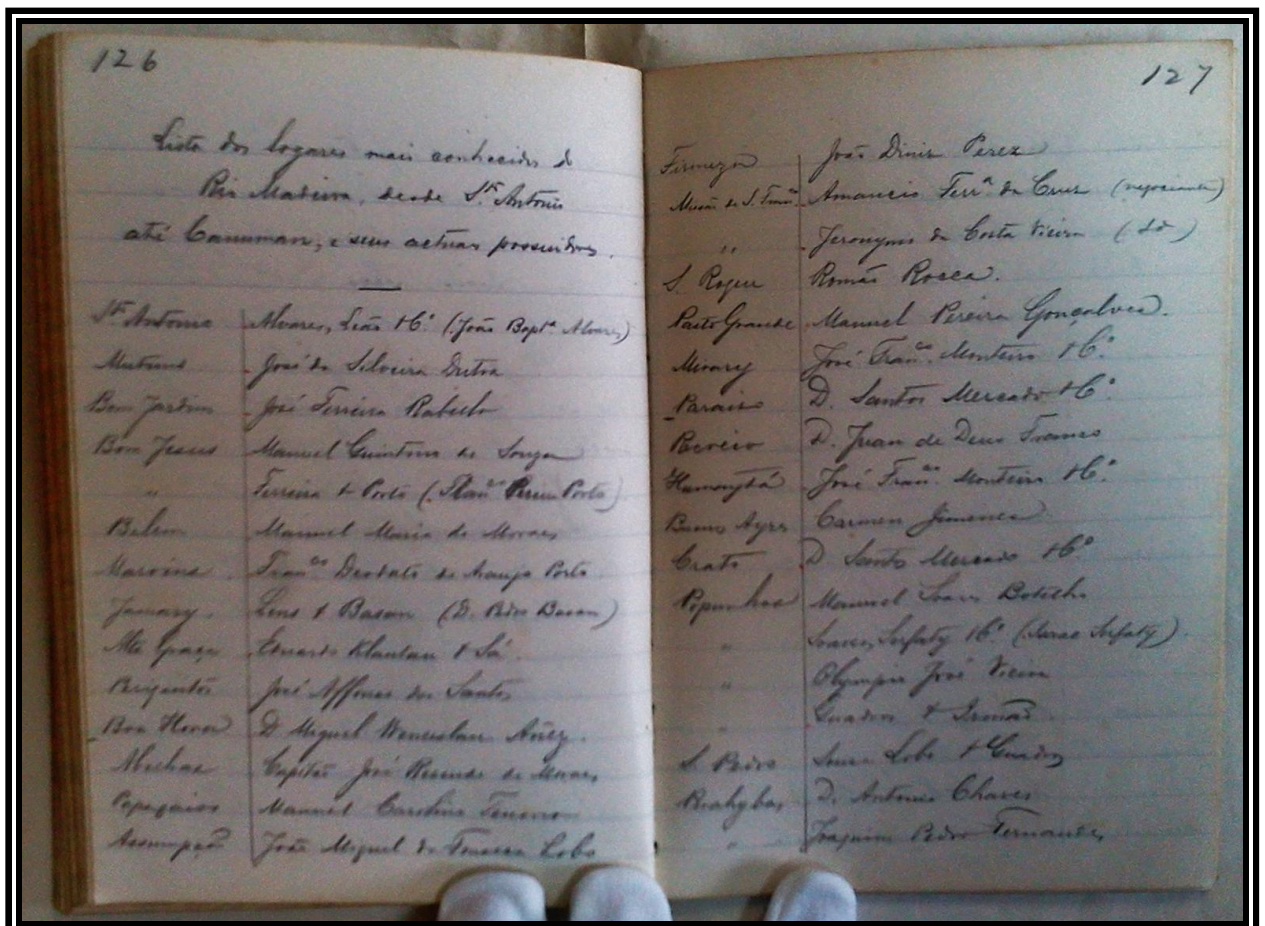 126
Lista dos logares mais conhecidos do
Rio Madeira, desde Sto Antonio
até Canuman, e seus actuaes possuidores.
Sto Antonio Alvares, Leão & Cª (João Bapta Alvares)
José da Silveira Dutra
Bom Jardim José Ferreira Rabello
Bom Jesus Manuel Quintino de Souza
" Ferreira & Porto (Porto)
Belem Manuel Maria de Moraes
Franco Deodato de Araujo Porto
Jamary Lens & Bacan (D. Pedro Bacan)
Mte Graça Eduardo & Sá
José Affonso dos Santos
Boa Hora D Miguel Wenceslau Añez
Capitão José Resende de Moraes
Papagaios Manuel Carolino
Assumpção João Miguel da Fonseca Lobo
127
Firmeza João Diniz Perez
Missão de S. Franco Amancio Ferra da Cruz (negociante)
" Jeronymo da Costa Vieira (do)
S. Roque Romão Rocca
Pasto Grande Manuel Pereira Gonçalves.
Mirary José Franco Monteiro & Cª
Paraiso D. Santos Mercado & Cª
Recreio D. Juan de Deus Franco
Humaythá José Franco Monteiro & Cª
Buenos Ayres Carmen Jimenez
Crato D Santos Mercado & Cª
Popunhas Manuel Soares Botelho
" Soares, Serfaty & Cª (Isaac Serfaty)
" Olympio José Vieira
" & Irmão
S. Pedro Souza Lobo &
D. Antonio Chaves
" Joaquim Pedro Fernandes